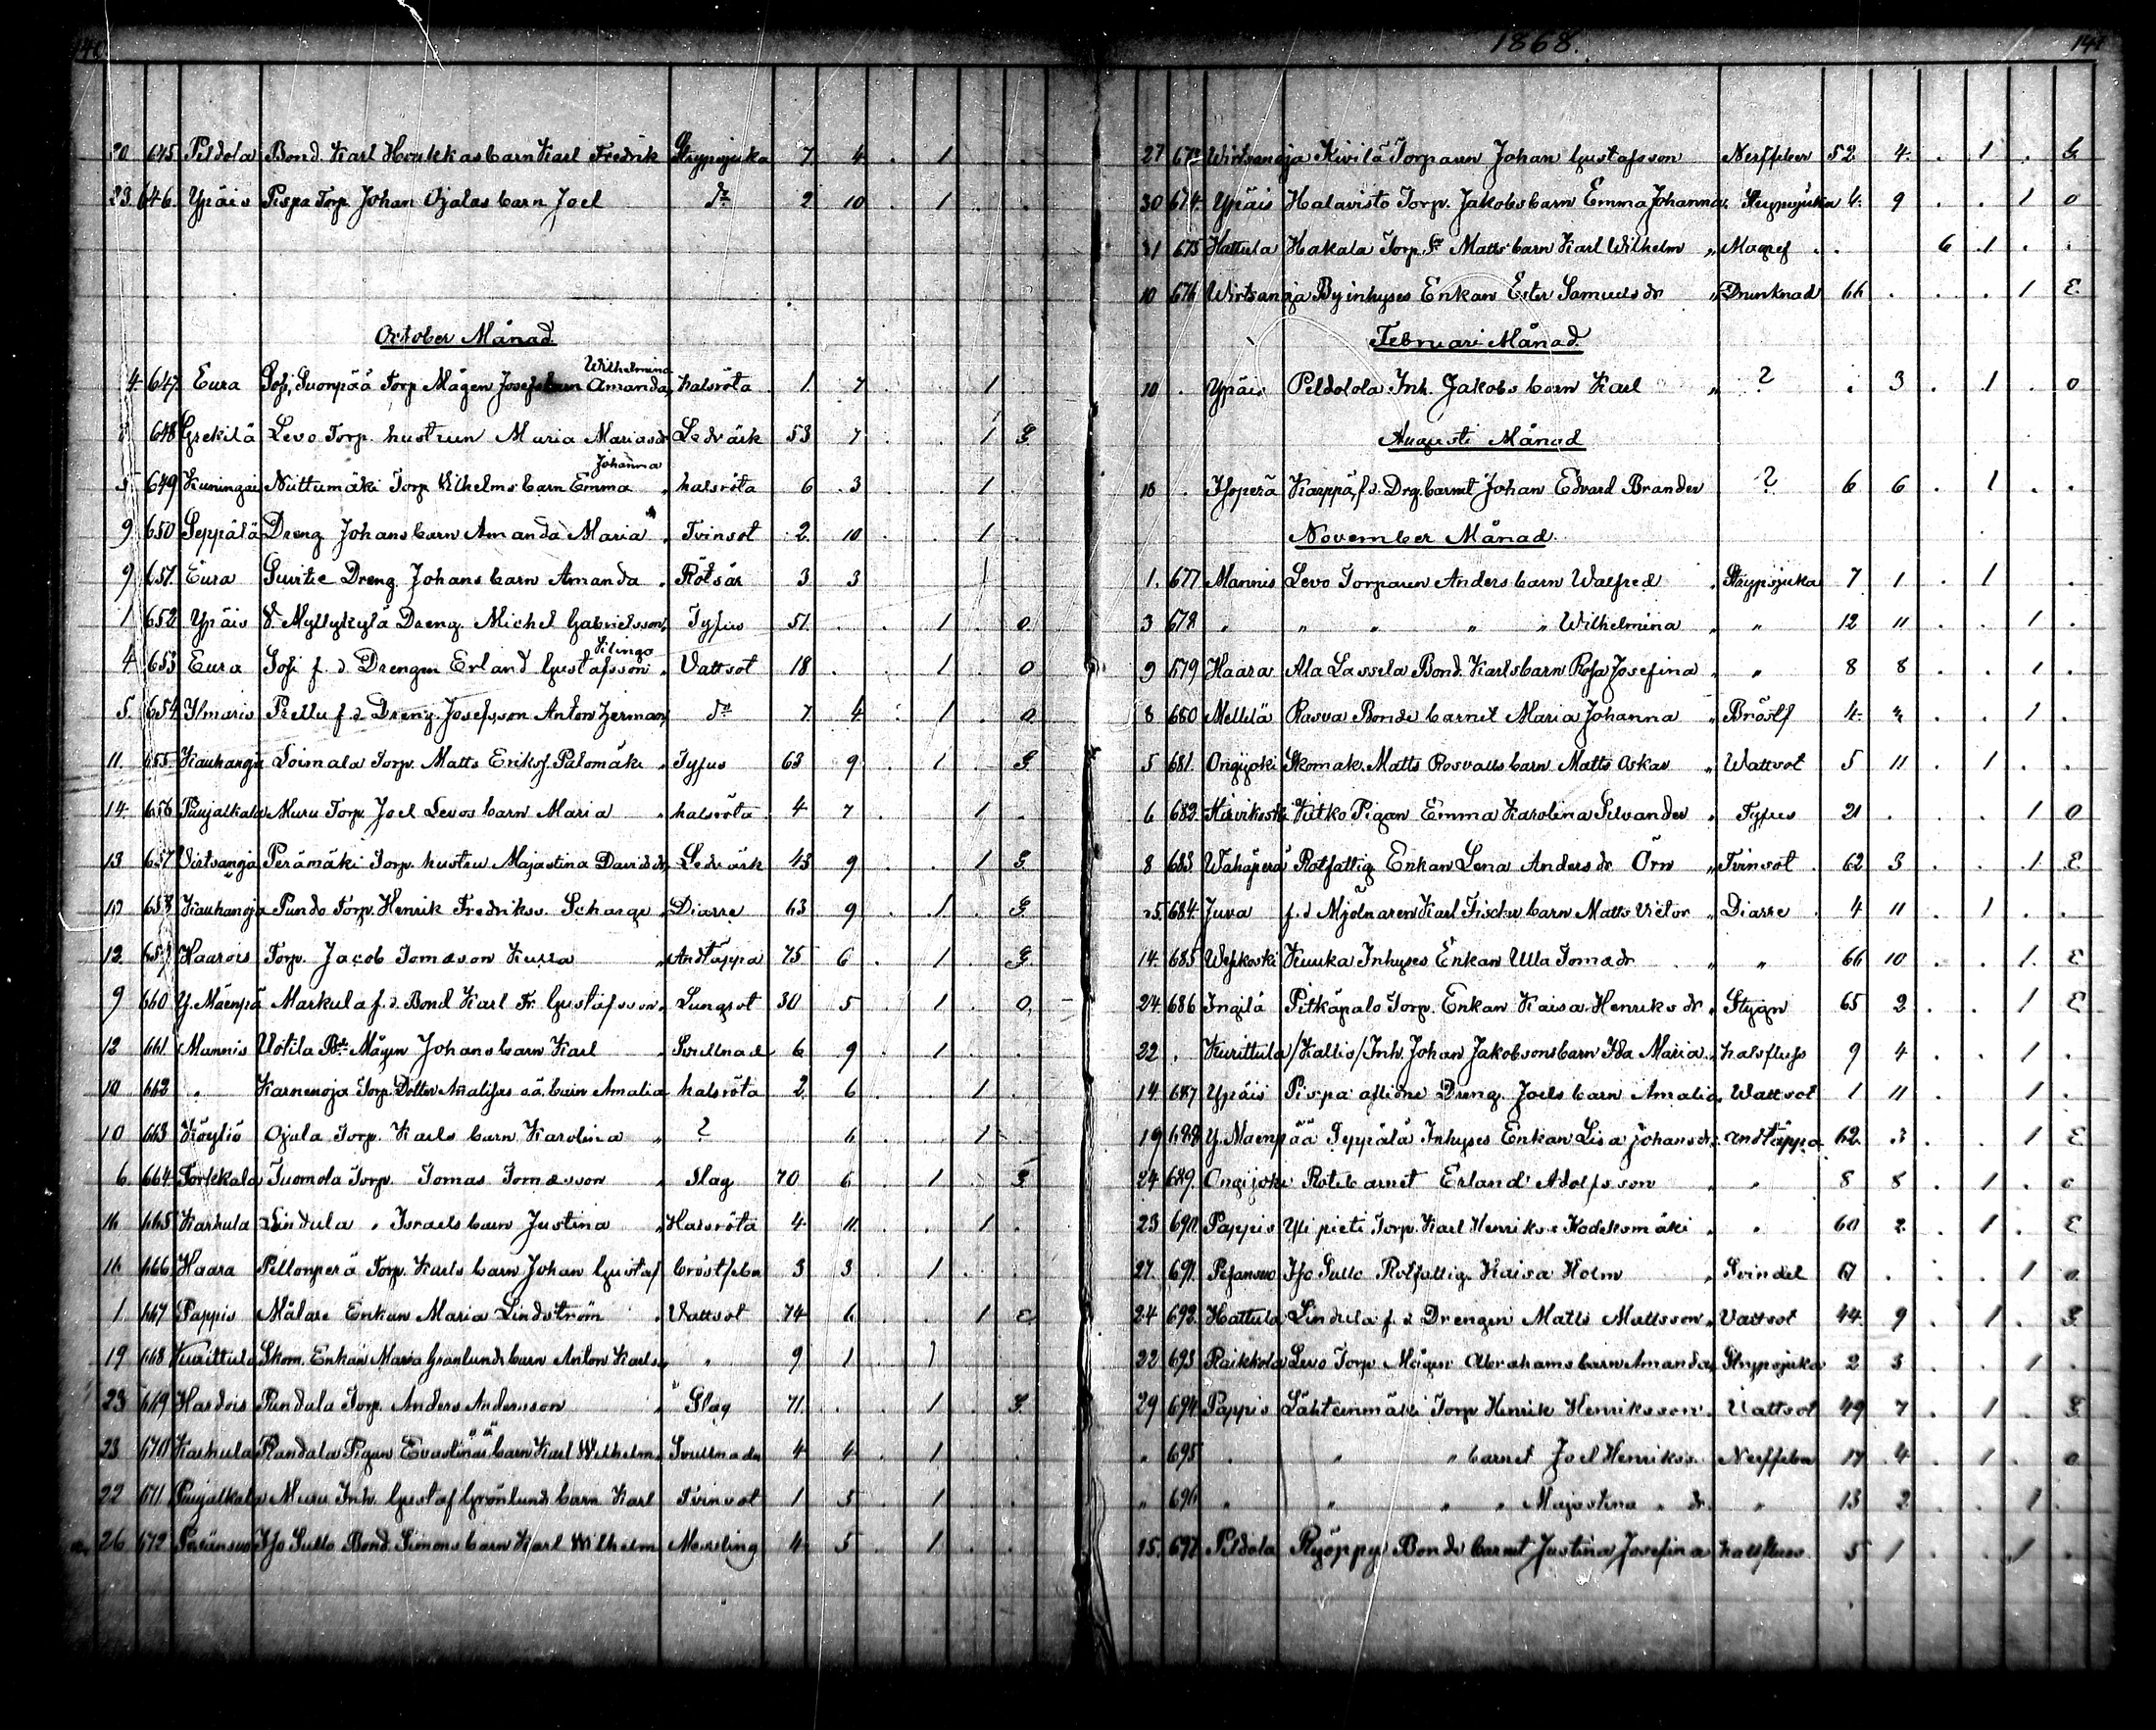 140
20 645 Peldola Bond. Karl Horkkas barn Karl Fredrik Strypsjuka 7 4 . 1
23. 646. Ypäis Pispa Torp. Johan Ojalas barn Joel dº 2 10 . 1 . .
October Månad.
Wilhelmina
4 647 Eura Sofi, Suonpää Torp Mågen Josefs barn Amanda halsröta 1. 7 . . 1 .
648 Grekilä Levo Torp. hustrun Maria Mariasdr Ledvärk 53 7 . . 1 G.
Johanna
5 649 Kuningais Niittumäki Torp. Wilhelms barn Emma halsröta 6 3 . . 1 .
9 650 Seppälä Dreng Johans barn Amanda Maria Tvinsot 2. 10 . . 1 .
9 651. Eura Suitie Dreng. Johans barn Amanda Rötsår 3 3 1
1 652 Ypäis V. Myllykylä Dreng. Michel Gabrielsson Tyfus 51. . . 1 . 0.
4 653 Eura Sofi f. d. Drengen Erland Gustafsson Vattsot 18 . . 1 . 0
5. 654 Ylmaris Prellu f. d. Dreng. Josefsson Anton Herman dº 7 4 . 1 . 0
11. 655. Kauhanoja Loimala Torp. Matts Eriks. Palomäki Tyfus 63 9 . 1 . G.
14. 656 Puujalkala Muru Torp. Joel Levos barn Maria halsröta 4 7 . . 1 .
13 657 Virtsanoja Perämäki Torp. hustru Majastina Davidsdr Ledvärk 43 9 . . 1 G.
658 Kauhanoja Pundo Torp. Henrik Fredrikss. Scharge Diarre 63 9 . 1 . G.
12. 659 Haarois Torp. Jacob Tomasson Kurra Andtäppa 75 6 . 1 . G.
9 660 Y. Mäenpä Markula f. d. Bond Karl Fr. Gustafsson Lungsot 30 5 . 1 . 0.
12 661 Mannis Uotila Mågen Johans barn Karl Svullnad 6 9 . 1 . .
10 662 " Karnenoja Torp. Dotter Amalias o.ä. barn Amalia halsröta 2 6 . . 1 .
10 663 Köyliö Ojala Torp. Karls barn Karolina ? 6 . . 1 .
6 664. Torkkala Tuomola Torp. Tomas Tomasson Slag 70 6 . 1 . G
16 665 Karhula Lindula " Israels barn Justina Halsröta 4 11. . . 1 .
16 666 Haara Pellonperä Torp. Karls barn Johan Gustaf bröstfeber 3 3 . 1 .
1. 667 Pappis Målare Enkan Maria Lindström Vattsot 74 6 . . 1 E.
19 668 Kurittula Skom. Enkan Maria Granlunds barn Anton Karls. " 9 1 . 1 . .
23 669 Hardois Pundala Torp. Anders Andersson Slag 71. . . 1 . G.
23 670 Karhula Randala Pigan Evastinas oä barn Karl Wilhelm Svullnader 4 4 . 1 .
22 671 Puujalkala Muru Inh. Gustaf Grönlunds barn Karl Tvinsot 1 5 . 1 .
26 672 Pärinsuo Iso Sullo Bond. Simons barn Karl Wilhelm Mässling 4 5 . 1 .
1868.
141
27 673 Wirtsanoja Kivilä Torparen Johan Gustafsson Nerffeber 52 4. . 1 . G.
30 674. Ypäis Halavisto Torp. Jakobs barn Emma Johanna Strypsjuka 4. 9 . . 1 0
31 675 Hattula Hakala Torp. Sr Matts barn Karl Wilhelm " Magref . . 6 1 . .
10 676 Wirtsanoja Byinhyses Enkan Ester Samuelsdr " Drunknad 66 . . . 1 E.
Februari Månad.
10 . Ypäis Peldolola Inh. Jakobs barn Karl " ? . 3 . 1 . 0
Augusti Månad
18 . Isoperä Karppä, f. d. Drg. barnet Johan Edvard Brander ? 6 6 . 1 . .
November Månad.
1. 677 Mannis Levo Torparen Anders barn Walfred Strypsjuka 7 1 . 1 .
3 678 " " " " " Wilhelmina " " 12 11 . . 1 .
9 679 Haara Ala Lassila Bond. Karls barn Rosa Josefina " " 8 8 . . 1 .
8 680 Mellilä Rasva Bonde barnet Maria Johanna " Bröstf 4. 4 . . 1 .
5 681. Orijoki Skomak. Matts Rosvalls barn Matts Oskar " Wattsot 5 11 . 1 . .
6 682. Hirvikoski Kitko Pigan Emma Karolina Silvander Tyfus 21 . . . 1 0
8 683 Wahäperä Rotfattig Enkan Lena Andersdr. Örn " Tvinsot 62 3 . . 1 E
25 684. Juva f. d. Mjölnaren Karl Fischer barn Matts Victor " Diarre 4 11 . 1 . .
14. 685 Wepkoski Kuuka Inhyses Enkan Ulla Tomadr " " 66 10 . . 1. E
24. 686 Ingilä Pitkäpalo Torp. Enkan Kaisa Henriksdr " Stygn 65 2 . . 1 E
22 . Kurittula /Kallis/ Inh. Johan Jakobsons barn Ida Maria Halsfluss 9 4 . . 1 .
14. 687 Ypäis Pispa aflidne Dreng. Joels barn Amalia Wattsot 1 11 . 1 .
19 688 Y. Mäenpää Seppälä Inhyses Enkan Lisa Johansdr. andtäppa 62. 3 . . 1 E
24 689. Ongijoki Rotebarnet Erland Adolfsson " " 8 8 . 1 . 0
23 690. Pappis Yli pieti Torp. Karl Henriks. Kodeksmäki " " 60 2 . 1 . E
27. 691. Pesansuo Iso Sullo Rotfattig. Kaisa Holm " Svindel 67 . . . 1 0
24 692. Hattula Lindula f. d. Drengen Matts Mattsson " Vattsot 44. 9 . 1 . G.
22 693 Raikkola Levo Torp. Mågen Abrahams barn Amanda Strypsjuka 2 3 . . 1 .
29 694 Pappis Lähtenmäki Torp Henrik Henriksson Vattsot 49 7 . 1 . G.
" 695 . " " barnet Joel Henrikss. Nerffeber 17 4 . 1 . 0
" 696 " " " " Majastina " dr. " 13 2 . . 1 .
15. 697 Peldola Ryöppy Bonde barnet Justina Josefina halsfluss 5 1 . . 1 .